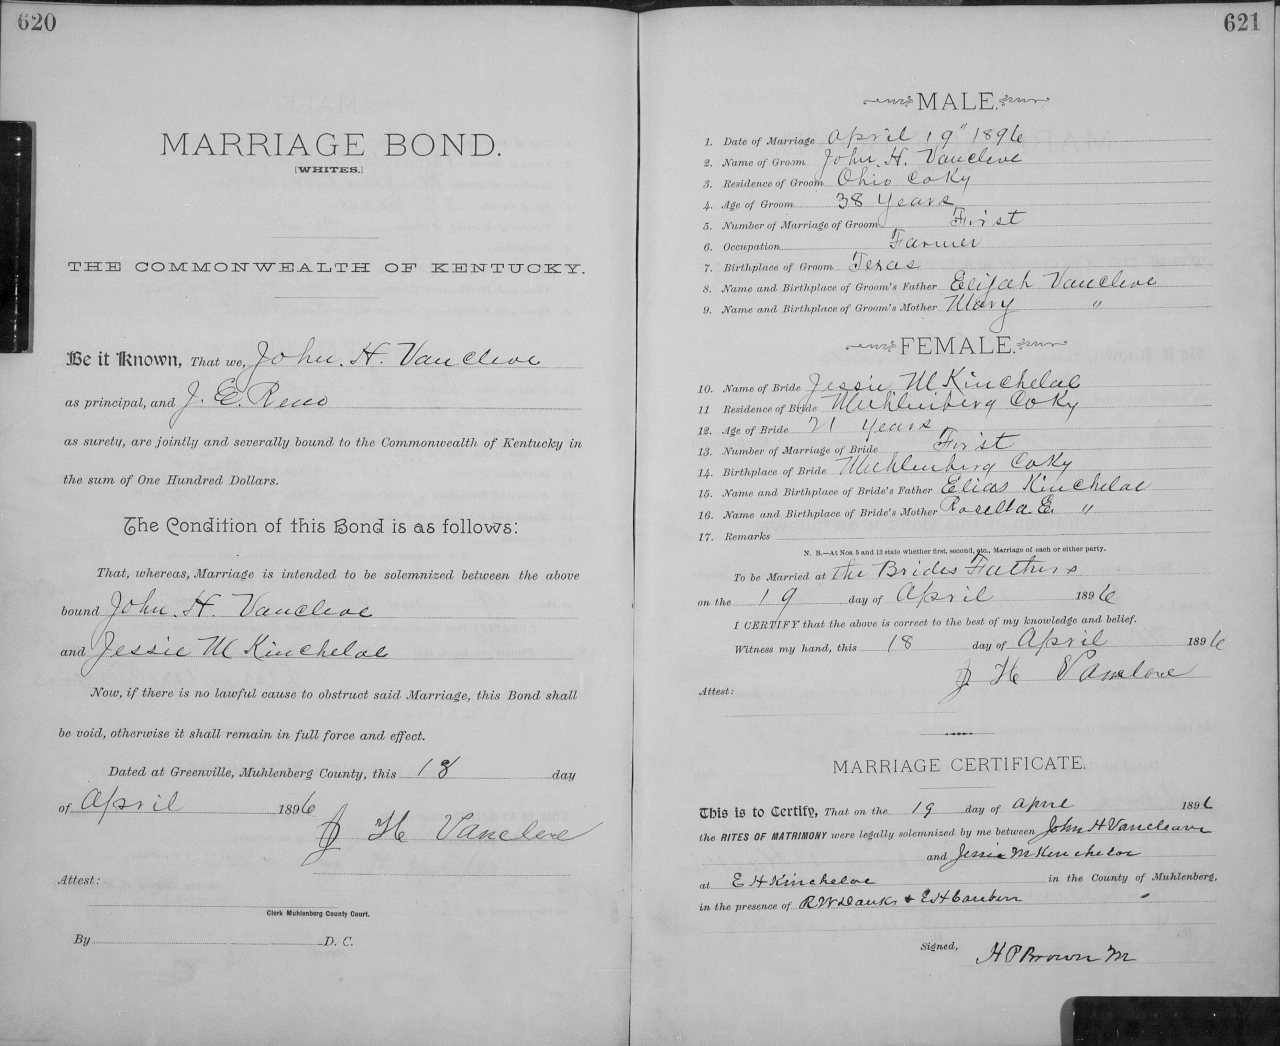 620
MARRIAGE BOND.
[WHITES.]
THE COMMONWEALTH OF KENTUCKY.
Be it Known, That we, John. H. Vancleve
as principal, and J. E. Reno
as surety, are jointly and severally bound to the Commonwealth of Kentucky in
the sum of One Hundred Dollars.
The Condition of this Bond is as follows:
That, whereas, Marriage is intended to be solemnized between the above
bound John. H. Vancleve
and Jessie M Kincheloe
Now, if there is no lawful cause to obstruct said Marriage, this Bond shall
be void, otherwise it shall remain in full force and effect.
Dated at Greenville, Muhlenberg County, this 18 day
of April 1896
J H Vanclove
Attest:
Clerk Muhlenberg County Court.
By D. C.
621
MALE.
1. Date of Marriage April 19" 1896
2. Name of Groom John. H. Vancleve
3. Residence of Groom Ohio Co Ky
4. Age of Groom 38 Years
5. Number of Marriage of Groom First
6. Occupation Farmer
7. Birthplace of Groom Texas
8. Name and Birthplace of Groom's Father Elijah Vancleve
9. Name and Birthplace of Groom's Mother Mary "
FEMALE.
10. Name of Bride Jessie M Kincheloe
11 Residence of Bride Muhlenberg Co Ky
12. Age of Bride 21 years
13. Number of Marriage of Bride First
14. Birthplace of Bride Muhlenberg Co Ky
15. Name and Birthplace of Bride's Father Elias Kincheloe
16. Name and Birthplace of Bride's Mother Rosella E. "
17. Remarks
N. B.—At Nos. 5 and 13 state whether first, second, etc., Marriage of each or either party.
To be Married at the Brides Fathers
on the 19 day of April 1896
I CERTIFY that the above is correct to the best of my knowledge and belief.
Witness my hand, this 18 day of April 1896
J H Vanclove
Attest:
MARRIAGE CERTIFICATE.
This is to Certify, That on the 19 day of April 1896
the RITES OF MATRIMONY were legally solemnized by me between John H Vancleave
and Jessie M Kincheloe
at E H Kincheloe in the County of Muhlenberg,
in the presence of R W & E H
Signed,
H P Brown M